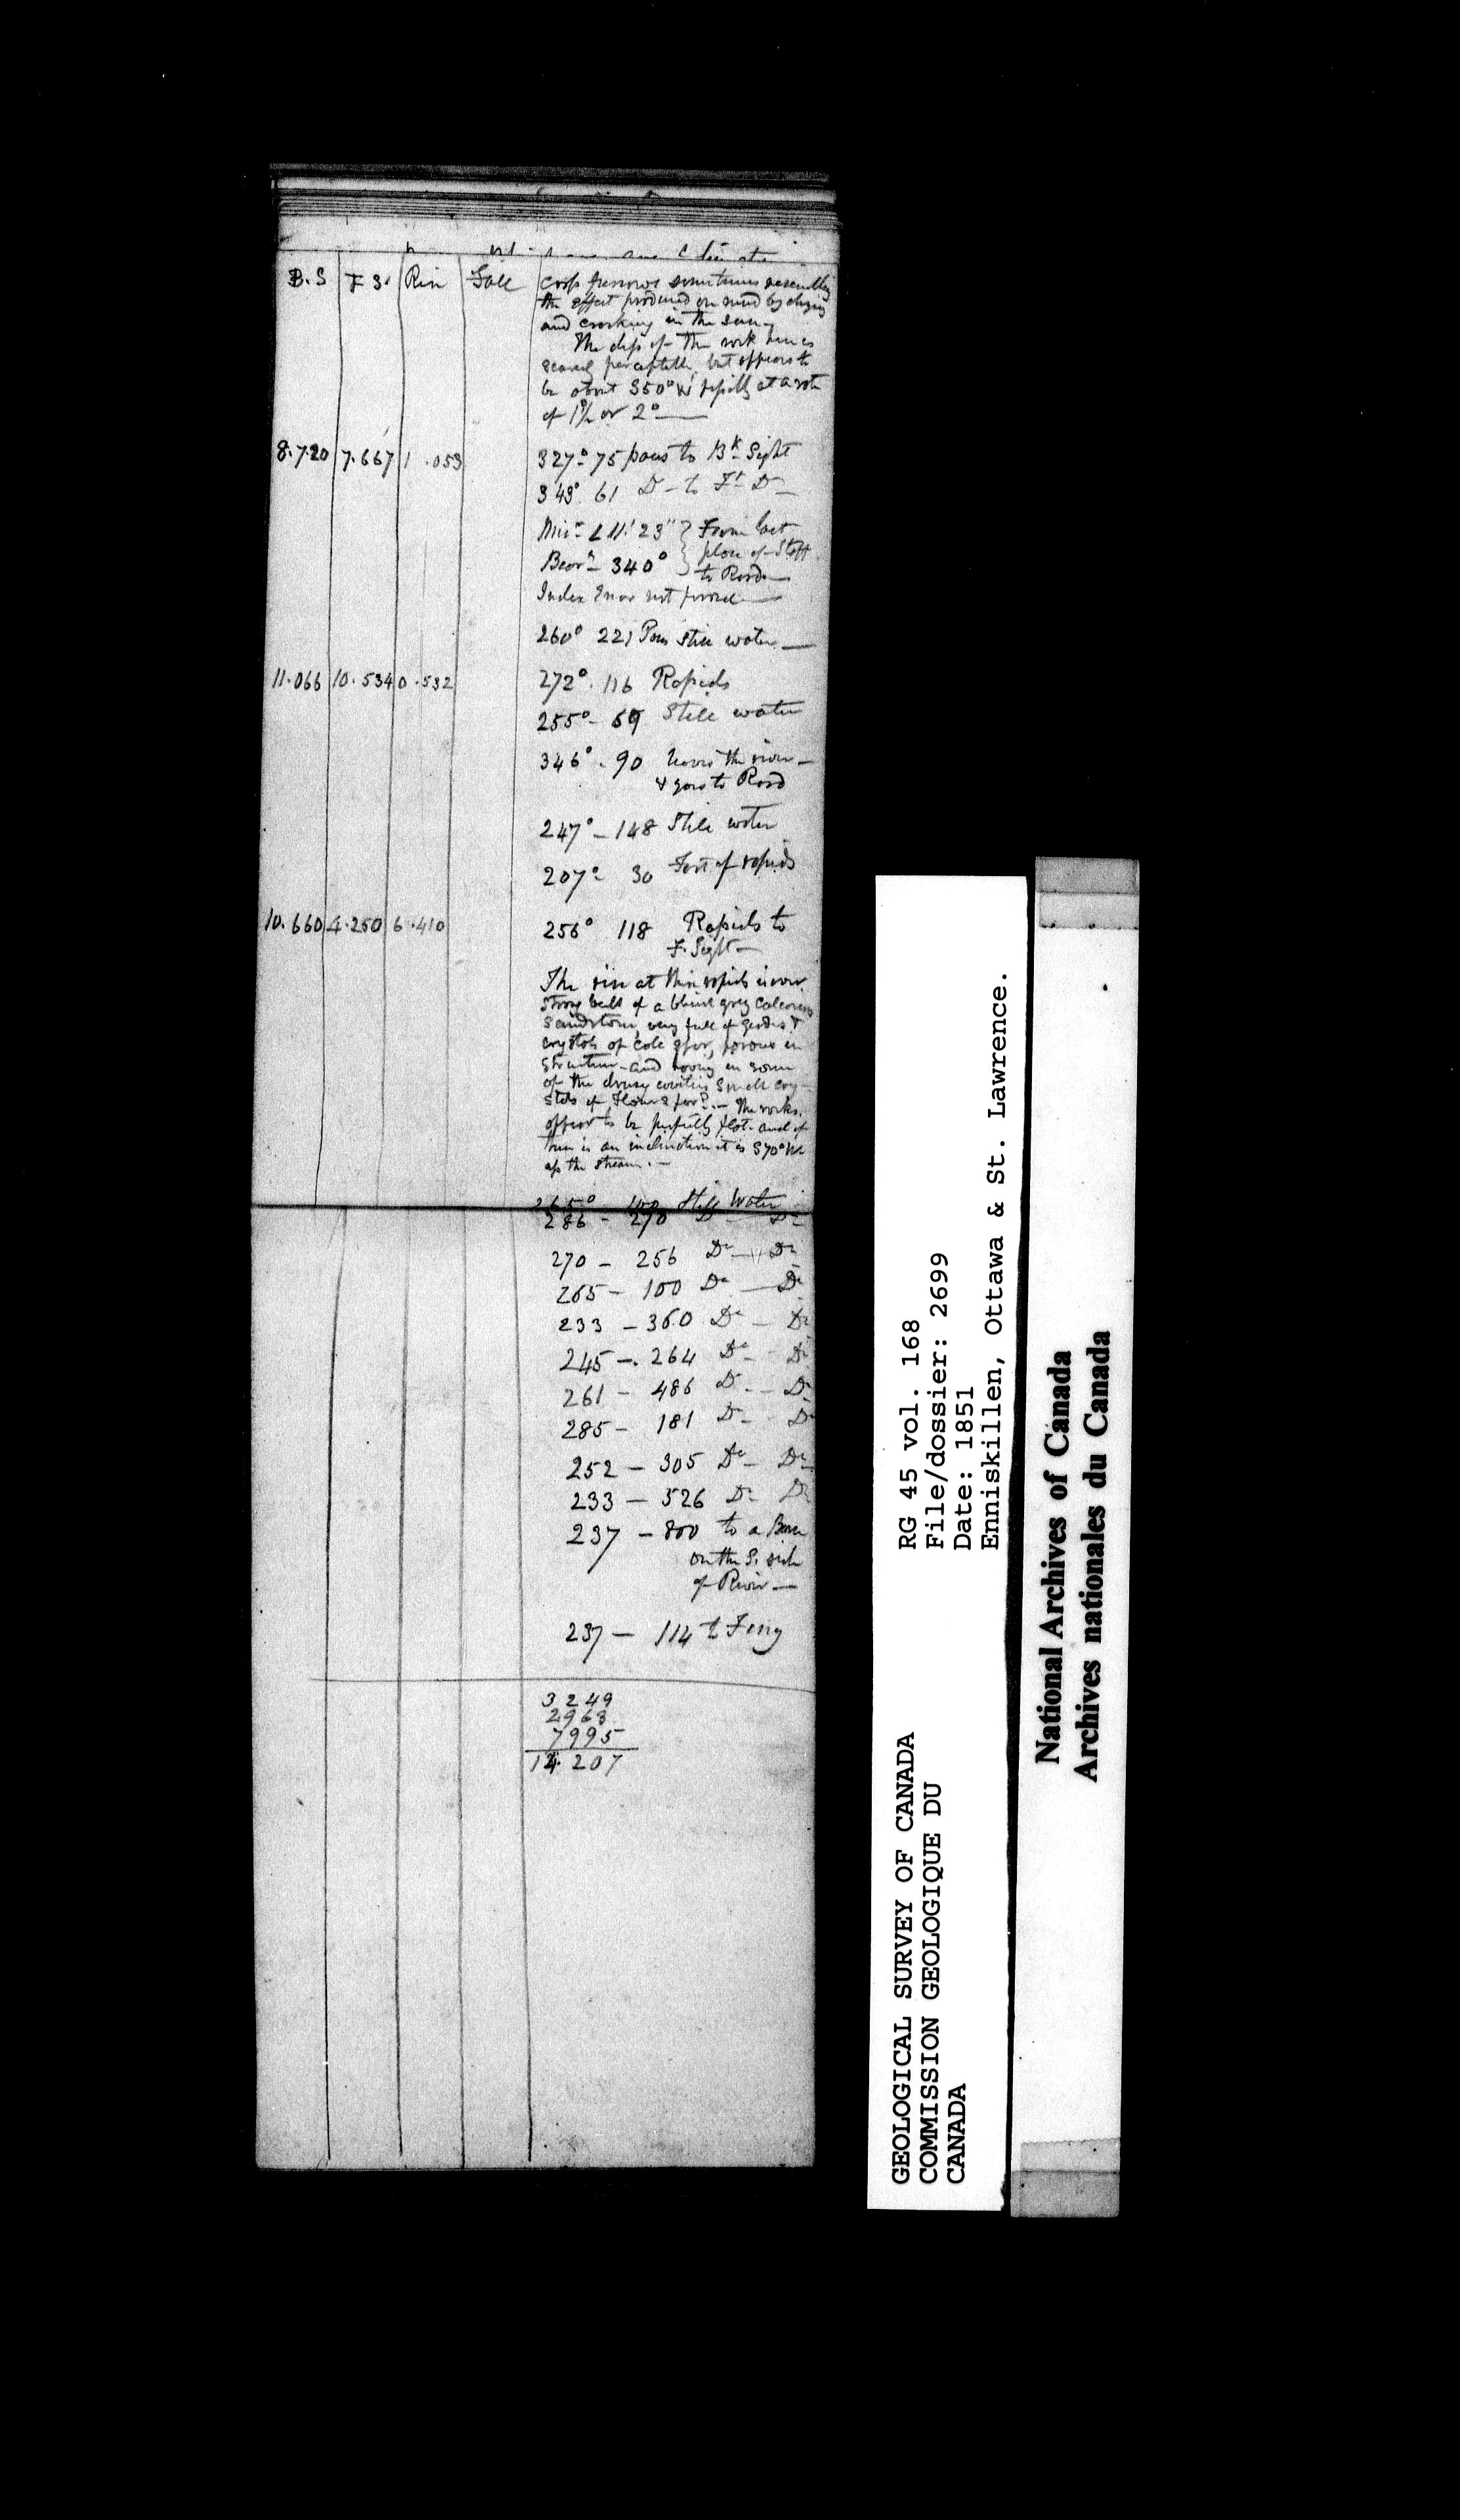 B.S F.S. Rise Fall
cross furrows sometimes resembling
the effect produced on mud by drying
and cracking in the sun
The dip of the rock here is
scarcely perceptible, but appears to
be about S50°W at a rate
of 1½ or 2°
8.720 7.667 1.053 327° 75 paces to Bk Sight
343° 61 Do to Ft Do
Micr L 11' 23" } From last
Bearg 340° place of Staff
to Road
Index Error not
260° 221 Paces Still water
11.066 10.534 0.532 272° 116 Rapids
255° 69 Still water
346° 90 leaves the river
& goes to Road
247° 148 Still water
207° 30 Foot of rapids
10.660 4.250 6.410 256° 118 Rapids to
F. Sight
The rise at these rapids is over
strong beds of a bluish grey calcareous
sandstone, very full of geodes &
crystals of calc spar, porous in
structure and having in some
of the drusy cavities small cry-
stals of Flour spar? The rocks
appear to be perfectly flat and if
there is an inclination it is S70°W
up the stream.
265° 150 Still Water
286 - 270 Do Do
270 - 256 Do Do
265 - 100 Do Do
233 - 360 Do Do
245 - 264 Do Do
261 - 486 Do Do
285 - 181 Do Do
252 - 305 Do Do
233 - 526 Do Do
237 - 800 to a Barn
on the S. side
of River
237 - 114 to Ferry
3249
2963
7995
14.207
GEOLOGICAL SURVEY OF CANADA
COMMISSION GEOLOGIQUE DU
CANADA
RG 45 vol. 168
File/dossier: 2699
Date: 1851
Enniskillen, Ottawa & St. Lawrence.
National Archives of Canada
Archives nationales du Canada